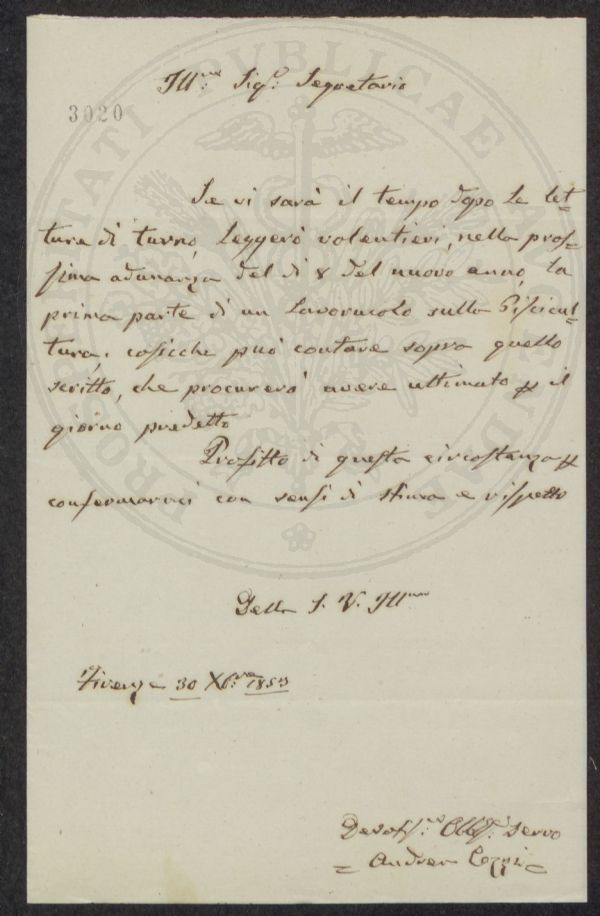 Ill.mo Sig.e Segretario
3020
Se vi sarà il tempo dopo le let-
ture di turno, leggerò volentieri, nella pros-
sima adunanza del dì 8 del nuovo anno, la
prima parte di un lavorucolo sulla Piscicul-
tura; cosicche può contare sopra quello
scritto, che procurerò avere ultimato p il
giorno predetto
Profitto di questa circostanza p
confermarmi con sensi di stima e rispetto
Della S. V. Ill.ma
Firenze 30 Xbre 1853
Devotis.mo Obbl.o Servo
= Andrea Cozzi =
PROSPERITATI PVBLICAE AVGENDAE